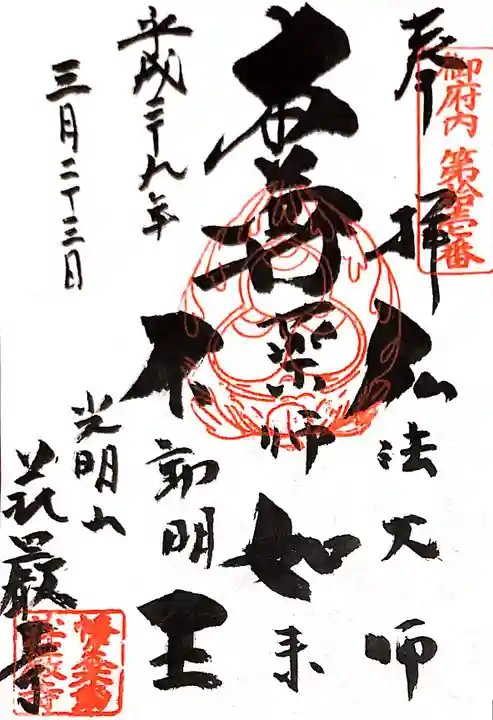 奉拝
御府内第拾壱番
弘法大師
本尊薬師如来
不動明王
平成二十九年
三月二十三日
光明山
華厳寺